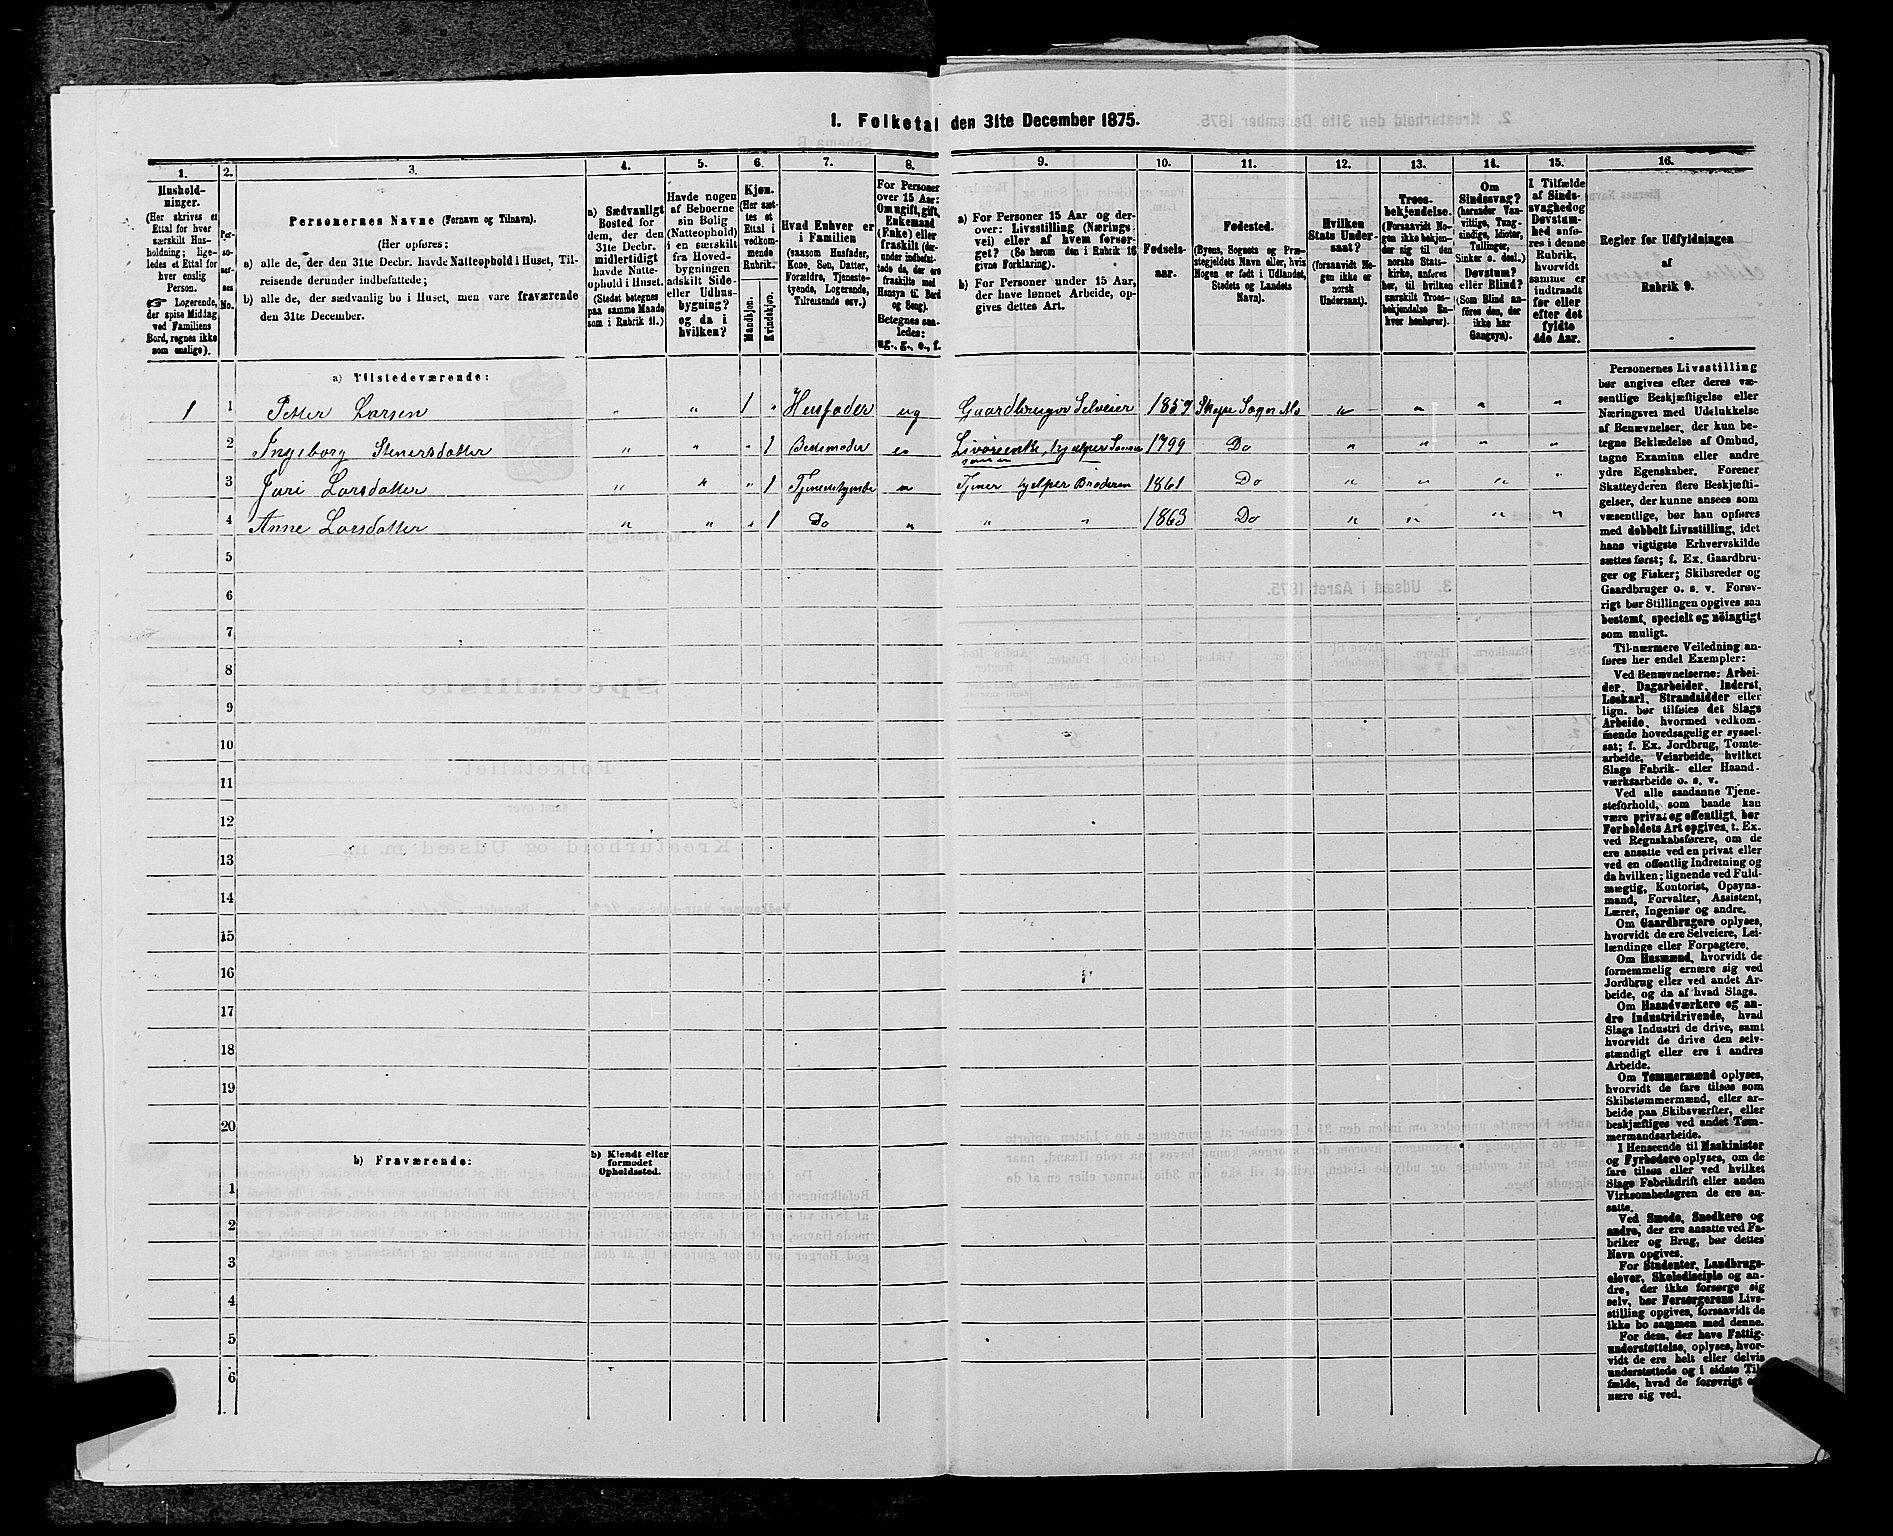 1. Folketal den 31te December 1875.
1.
Hushold-
ninger.
(Her skrives et
Ettal for hver
særskilt Hus-
holdning; lige-
ledes et Ettal for
hver enslig
Person.
Logerende,
der spise Middag
ved Familiens
Bord, regnes ikke
som enslige).
2.
Per-
so-
ner-
nes
No.
3.
Personernes Navne (Fornavn og Tilnavn).
(Her opføres:
a) alle de, der den 31te Decbr. havde Natteophold i Huset, Til-
reisende derunder indbefattede;
b) alle de, der sædvanlig bo i Huset, men vare fraværende
den 31te December.
4.
a) Sædvanligt
Bosted for
dem, der den
31te Decbr.
midlertidigt
havde Natte-
ophold i Huset.
(Stedet betegnes
paa samme Maade
som i Rubrik 11.)
5.
Havde nogen
af Beboerne
sin Bolig
(Natteophold)
i en særskilt
fra Hoved-
bygningen
adskilt Side-
eller Udhus-
bygning?
og da i
hvilken?
6.
Kjøn.
(Her sæt-
tes et
Ettal i
vedkom-
mende
Rubrik.)
Mandkjøn.
Kvindekjøn.
7.
Hvad Enhver er
i Familien
(saasom Husfader,
Kone, Søn, Datter,
Forældre, Tjeneste-
tyende, Logerende,
Tilreisende osv.)
8.
For Personer
over 15 Aar:
Om ugift, gift,
Enkemand
(Enke) eller
fraskilt (der-
under indbefat-
tede de, der ere
fraskilte med
Hensyn til Bord
og Seng).
Betegnes saa-
ledes:
ug., g., e., f.
9.
a) For Personer 15 Aar og der-
over: Livsstilling (Nærings-
vei) eller af hvem forsør-
get? (Se herom den i Rubrik 16
givne Forklaring).
b) For Personer under 15 Aar,
der have lønnet Arbeide, op-
gives dettes Art.
10.
Fødsels-
aar.
11.
Fødested.
(Byens, Sognets og Præ-
stegjeldets Navn eller, hvis
Nogen er født i Udlandet,
Stedets og Landets
Navn).
12.
Hvilken
Stats Under-
saat?
(forsaavidt No-
gen ikke er
norsk
Undersaat).
13.
Troes-
bekjendelse.
(Forsaavidt No-
gen ikke bekjen-
der sig til den
norske Stats-
kirke, anføres
her, til hvilken
særskilt Troes-
bekjendelse En-
hver henhører).
14.
Om
Sindssvag?
(herunder Van-
vittige, Tung-
sindige, Idioter,
Tullinger,
Sinker o. desl.)
Døvstum?
eller Blind?
(Som Blind an-
føres den, der
ikke har
Gangsyn).
15.
I Tilfælde
af Sinds-
svaghed og
Døvstum-
hed anfø-
res i denne
Rubrik,
hvorvidt
samme er
indtraadt
før eller
efter det
fyldte
4de Aar.
16.
Regler for Udfyldningen
af
Rubrik 9.
a) Tilstedeværende:
1 1 Petter Larsen " " 1 " Husfader ug Gaardbruger Selveier 1859 " " " "
2 Ingeborg Stenersdatter " " 1 Bedstemoder hjelper 1799 Do " " " "
3 Jari Larsdatter " " " 1 Tjenestetyende " Tjener hjelper Broderen 1861 Do " " " "
4 Anne Larsdatter " " " 1 Do " " " 1863 Do " " " "
5
6
7
8
9
10
11
12
13
14
15
16
17
18
19
20
b) Fraværende:
b) Kjendt eller
formodet
Opholdssted.
1
2
3
4
5
6
Personernes Livsstilling
bør angives efter deres væ-
sentlige Beskjæftigelse eller
Næringsvei med Udelukkelse
af Benævnelser, der kun be-
tegne Beklædelse af Ombud,
tagne Examina eller andre
ydre Egenskaber. Forener
Skatteyderen flere Beskjæfti-
gelser, der kunne ansees som
væsentlige, bør han opføres
med dobbelt Livsstilling, idet
hans vigtigste Erhvervskilde
sættes først; f. Ex. Gaardbru-
ger og Fisker; Skibsreder og
Gaardbruger o. s. v. Forøv-
rigt bør Stillingen opgives saa
bestemt, specielt og nøiagtigt
som muligt.
Til nærmere Veiledning an-
føres her endel Exempler:
Ved Benævnelserne: Arbei-
der, Dagarbeider, Inderst,
Løskarl, Strandsidder eller
lign. bør tilføies det Slags
Arbeide, hvormed vedkom-
mende hovedsagelig er syssel-
sat; f. Ex. Jordbrug, Tomte-
arbeide, Veiarbeide, hvilket
Slags Fabrik- eller Haand-
værksarbeide o. s. v.
Ved alle saadanne Tjene-
steforhold, som baade kan
være privat og offentligt, bør
Forholdets Art opgives, t. Ex.
ved Regnskabsførere, om de
ere ansatte ved en privat eller
ved en offentlig Indretning og
da hvilken; lignende ved Fuld-
mægtig, Kontorist, Opsyns-
mand, Forvalter, Assistent,
Lærer, Ingeniør og andre.
Om Gaardbrugere oplyses,
hvorvidt de ere Selveiere, Lei-
lændinge eller Forpagtere.
Om Husmænd, hvorvidt de
fornemmelig ernære sig ved
Jordbrug eller ved andet Ar-
beide, og da af hvad Slags.
Om Haandværkere og an-
dre Industridrivende, hvad
Slags Industri de drive, samt
hvorvidt de drive den selv-
stændigt eller ere i andres
Arbeide.
Om Tømmermænd oplyses,
hvorvidt de fare tilsøs som
Skibstømmermænd, eller ar-
beide paa Skibsværfter, eller
beskjæftiges ved andet Tøm-
mermandsarbeide.
I Henseende til Maskinister
og Fyrbødere oplyses, om de
fare tilsøs eller ved hvilket
Slags Fabrikdrift eller anden
Virksomhedsgren de ere an-
satte.
Ved Smede, Snedkere og
andre, der ere ansatte ved Fa-
briker og Brug, bør dettes
Navn opgives.
For Studenter, Landbrugs-
elever, Skoledisciple og an-
dre, der ikke forsørge sig
selv, bør Forsørgerens Livs-
stilling opgives, forsaavidt de
ikke bo sammen med denne.
For dem, der have Fattig-
understøttelse, oplyses, hvor-
vidt de ere helt eller delvis
understøttede og i sidste Til-
fælde, hvad de forøvrigt er-
nære sig ved.